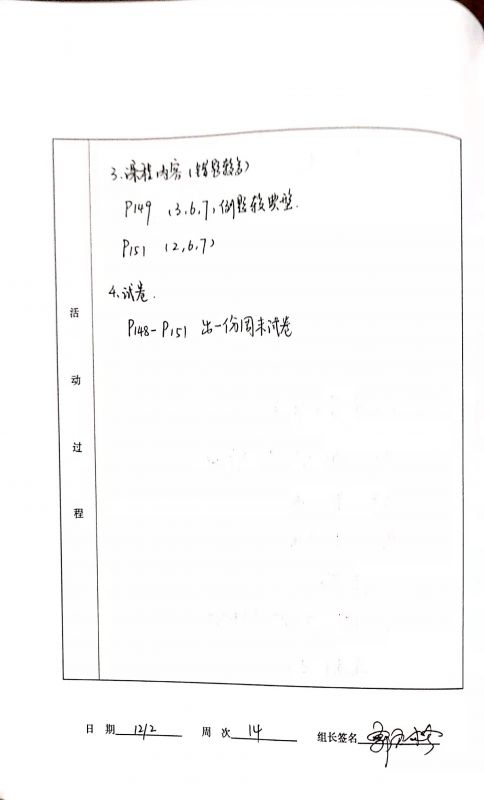 3.课程内容(错题较多)
P149 (3,6,7,例题较典型.
P151 (2,6,7)
4.试卷.
P148-P151 出一份周末试卷
活动过程
日 期 12/2 周 次 14 组长签名